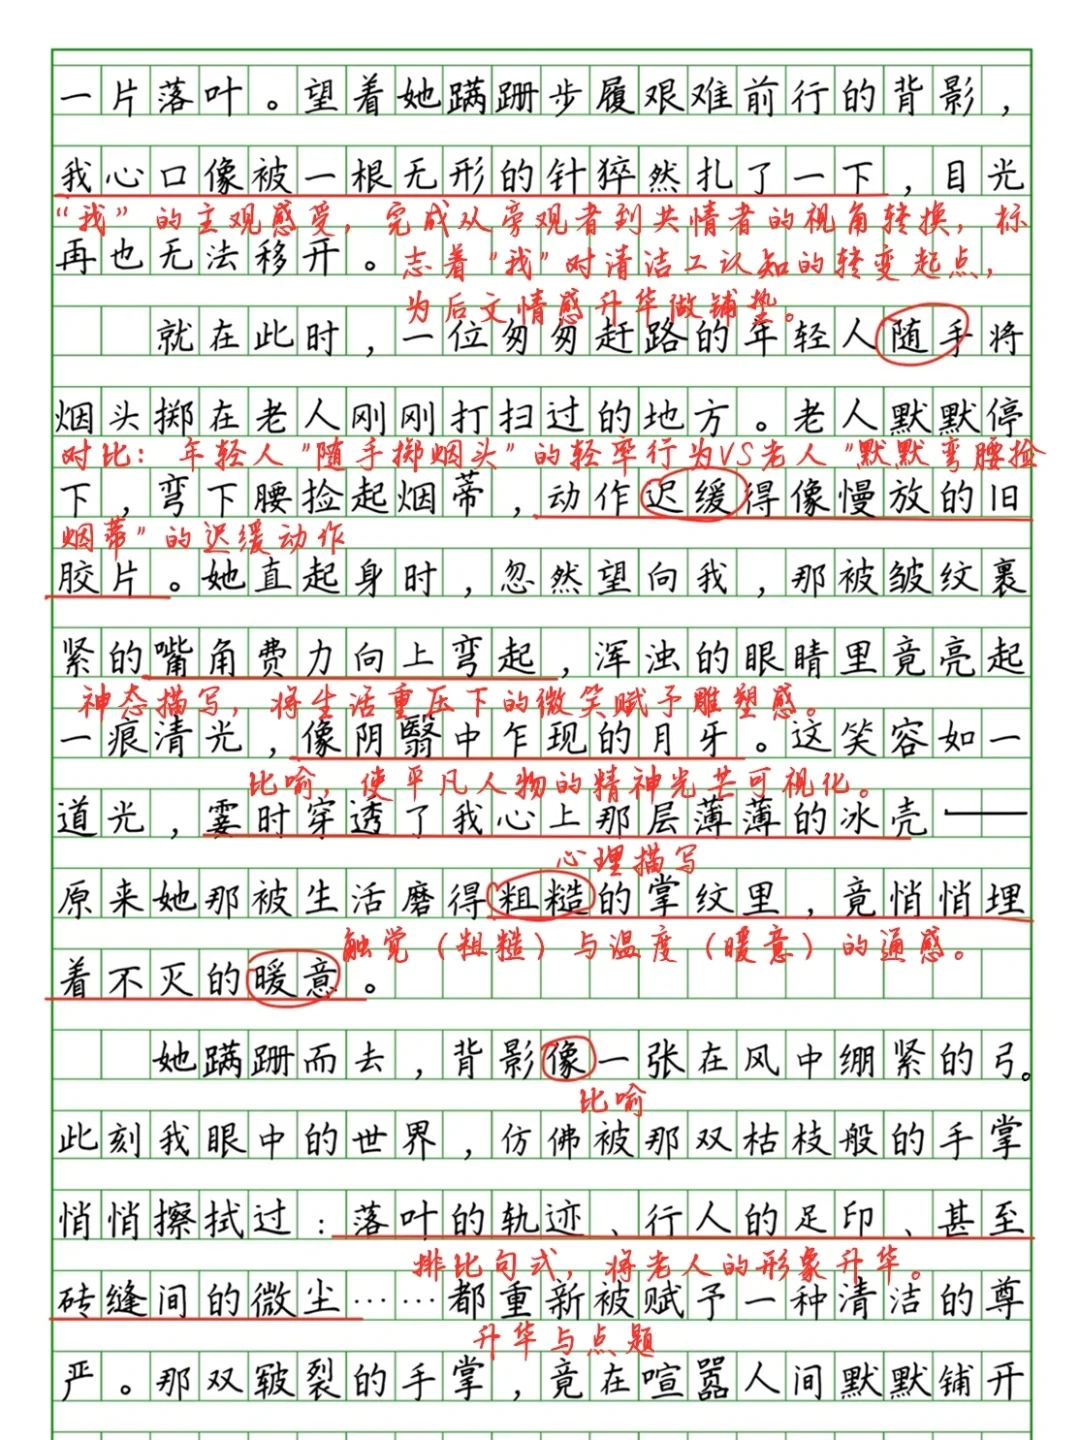 一片落叶。望着她蹒跚步履艰难前行的背影，
我心口像被一根无形的针猝然扎了一下，目光
“我”的主观感受，完成从旁观者到共情者的视角转换，标
再也无法移开。
志着“我”对清洁工认知的转变起点，
为后文情感升华做铺垫。
就在此时，一位匆匆赶路的年轻人随手将
烟头掷在老人刚刚打扫过的地方。老人默默停
对比：年轻人“随手掷烟头”的轻率行为VS老人“默默弯腰捡
下，弯下腰捡起烟蒂，动作迟缓得像慢放的旧
烟蒂”的迟缓动作
胶片。她直起身时，忽然望向我，那被皱纹裹
紧的嘴角费力向上弯起，浑浊的眼睛里竟亮起
神态描写，将生活重压下的微笑赋予雕塑感。
一痕清光，像阴翳中乍现的月牙。这笑容如一
比喻，使平凡人物的精神光芒可视化。
道光，霎时穿透了我心上那层薄薄的冰壳——
心理描写
原来她那被生活磨得粗糙的掌纹里，竟悄悄埋
触觉（粗糙）与温度（暖意）的通感。
着不灭的暖意。
她蹒跚而去，背影像一张在风中绷紧的弓。
比喻
此刻我眼中的世界，仿佛被那双枯枝般的手掌
悄悄擦拭过：落叶的轨迹、行人的足印、甚至
排比句式，将老人的形象升华。
砖缝间的微尘……都重新被赋予一种清洁的尊
升华与点题
严。那双皲裂的手掌，竟在喧嚣人间默默铺开